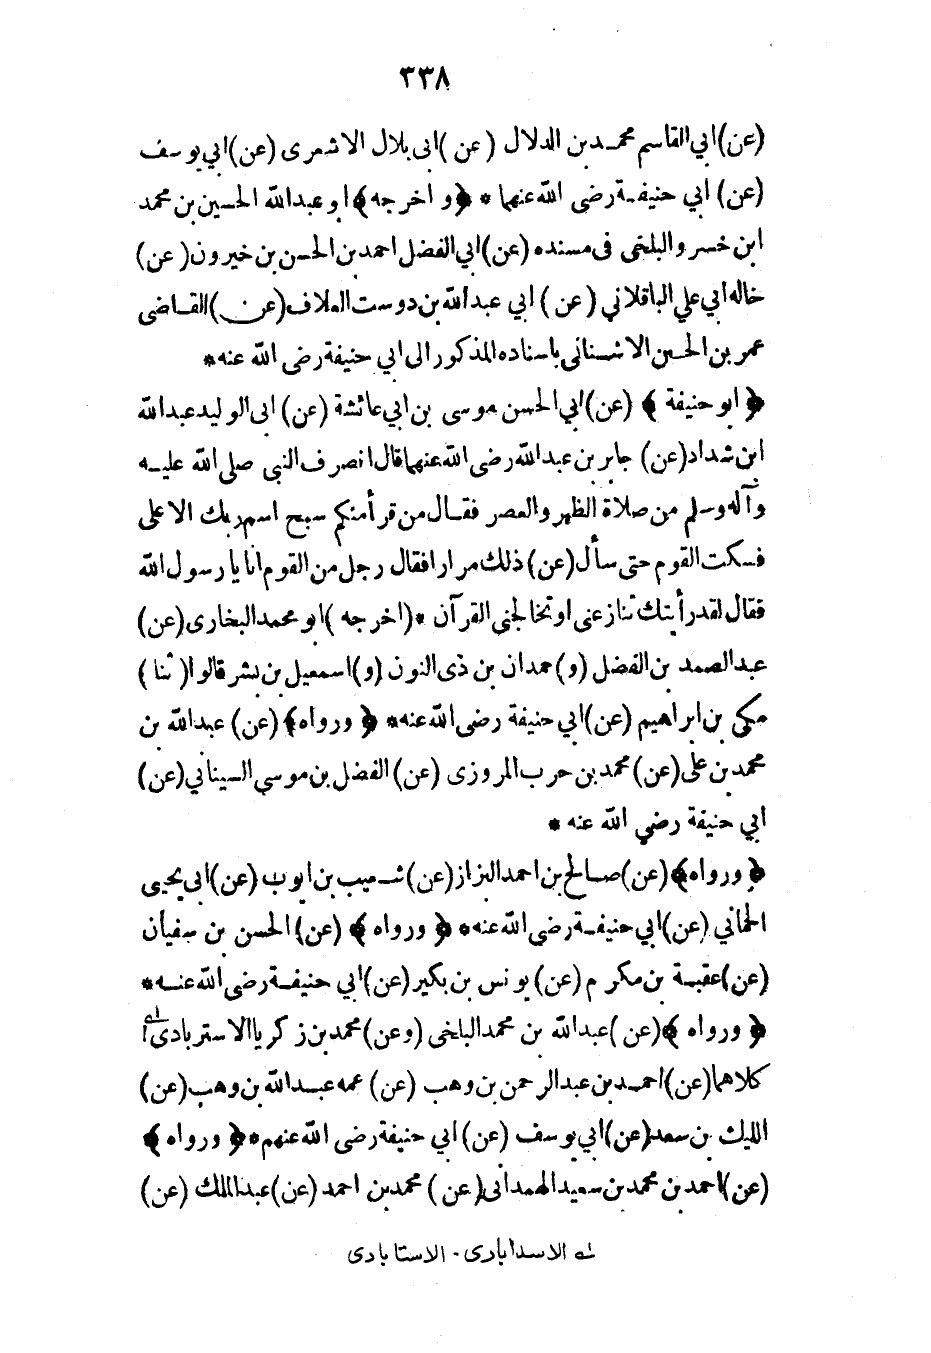 ٣٣٨
(عن) ابي القاسم محمد بن الدلال (عن) ابى بلال الاشعرى (عن) ابي يوسف
(عن) ابي حنيفة رضى الله عنهما * ﴿و اخرجه﴾ ابو عبدالله الحسين بن محمد
ابن خسرو البلخى فى مسنده (عن) ابي الفضل احمد بن الحسن بن خيرون (عن)
خاله ابي علي الباقلاني (عن) ابي عبدالله بن دوست العلاف (عن) القاضى
عمر بن الحسن الاشنانى باسناده المذكور الى ابي حنيفة رضى الله عنه *
﴿ ابو حنيفة ﴾ (عن) ابي الحسن موسى بن ابي عائشة (عن) ابى الوليد عبدالله
ابن شداد (عن) جابر بن عبدالله رضى الله عنهما قال انصرف النبى صلى الله عليه
وآله وسلم من صلاة الظهر والعصر فقال من قرأ منكم سبح اسم ربك الاعلى
فسكت القوم حتى سأل (عن) ذلك مرارا فقال رجل من القوم انا يا رسول الله
فقال لقد رأيتك تنازعنى او تخالجنى القرآن * (اخرجه) ابو محمد البخارى (عن)
عبد الصمد بن الفضل (و) حمدان بن ذى النون (و) اسمعيل بن بشر قالوا (ثنا)
مكى بن ابراهيم (عن) ابي حنيفة رضى الله عنه * ﴿ ورواه ﴾ (عن) عبدالله بن
محمد بن على (عن) محمد بن حرب المروزى (عن) الفضل بن موسى السيناني (عن)
ابي حنيفة رضي الله عنه *
﴿ ورواه ﴾ (عن) صالح بن احمد البزاز (عن) شعيب بن ايوب (عن) ابى يحيى
الحماني (عن) ابي حنيفة رضى الله عنه * ﴿ ورواه ﴾ (عن) الحسن بن سفيان
(عن) عقبة بن مكرم (عن) يونس بن بكير (عن) ابي حنيفة رضى الله عنه *
﴿ ورواه ﴾ (عن) عبدالله بن محمد البلخى (وعن) محمد بن زكريا الاستربادى
كلاهما (عن) احمد بن عبد الرحمن بن وهب (عن) عمه عبدالله بن وهب (عن)
الليث بن سعد (عن) ابي يوسف (عن) ابي حنيفة رضى الله عنهم * ﴿ ورواه ﴾
(عن) احمد بن محمد بن سعيد الهمدانى (عن) محمد بن احمد (عن) عبد الملك (عن)
له الاسدابادى - الاستابادى